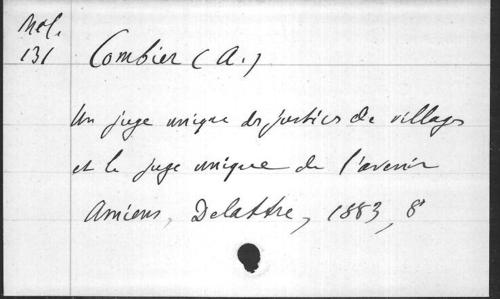 Mel.
131
Combier (A.)
Un juge unique des justices de villages
et le juge unique de l'avenir
Amiens, Delattre, 1883, 8°